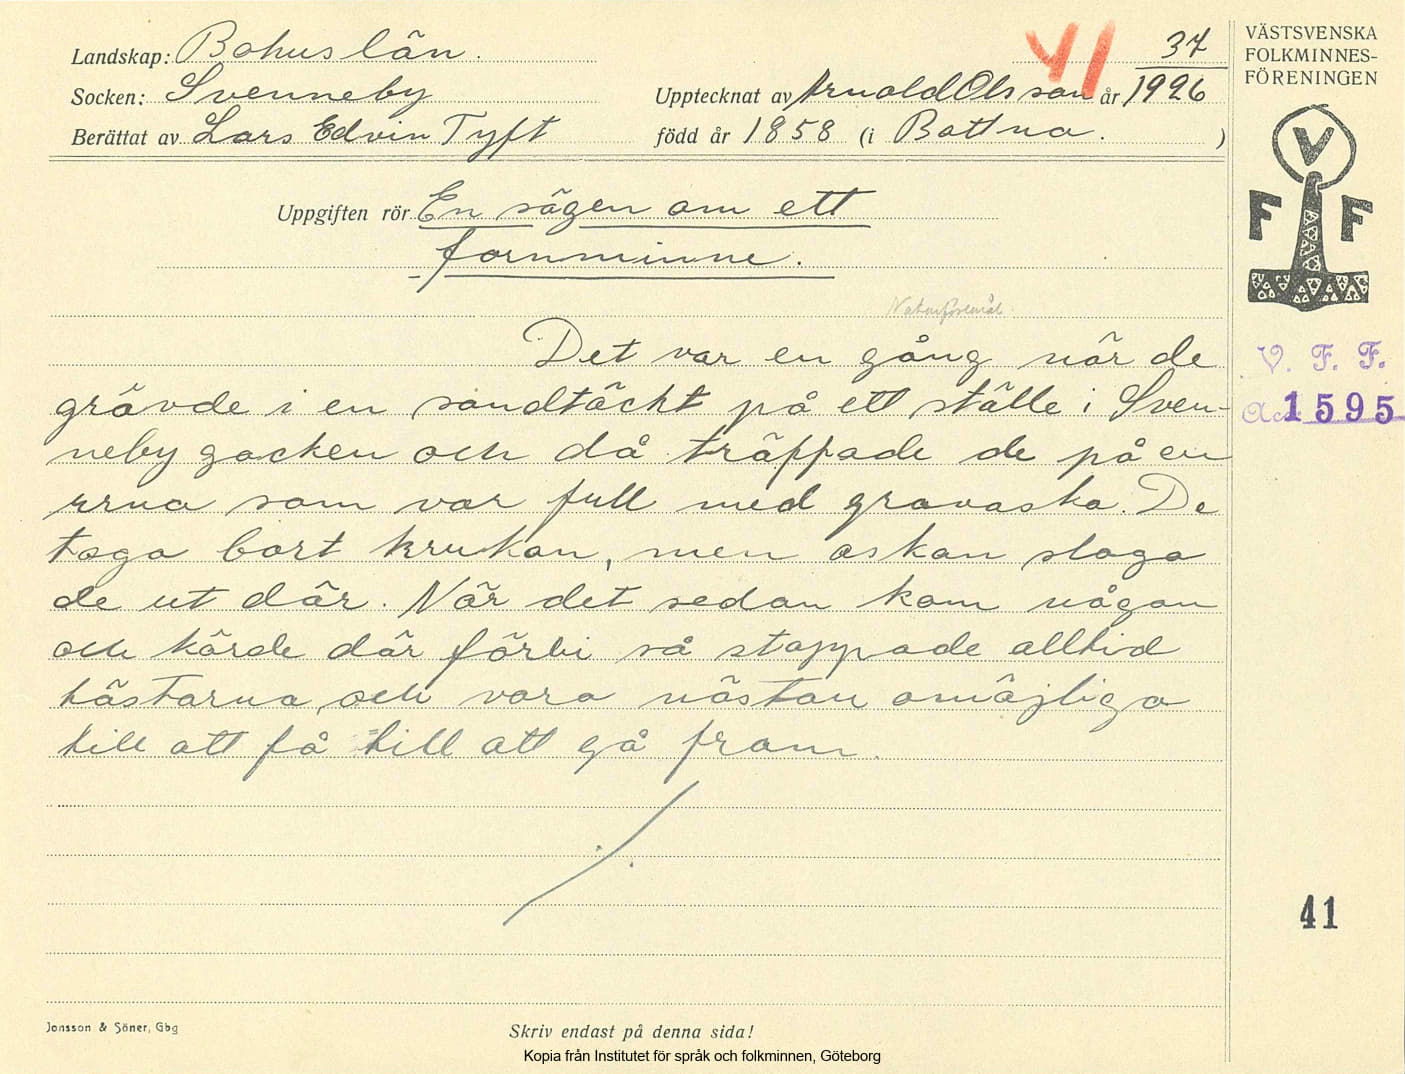 Landskap: Bohuslän.
Socken: Svenneby
Berättat av Lars Edvin Tyft
41
37
Upptecknat av Arnold Olsson år 1926
född år 1858 (i Bottna. )
VÄSTSVENSKA
FOLKMINNES-
FÖRENINGEN
V
F F
Uppgiften rör En sägen om ett
fornminne.
Naturföremål.
Det var en gång när de
grävde i en sandtäckt på ett ställe i Sven-
neby socken och då träppade de på en
urna som var full med gravaska. De
togo bort krukan, men askan slogo
de ut där. När det sedan kom någon
och körde där förbi så stoppade alltid
hästarna och voro nästan omöjliga
till att få till att gå fram.
V. F. F.
Acc. 1595
41
Jonsson & Söner, Gbg
Skriv endast på denna sida!
Kopia från Institutet för språk och folkminnen, Göteborg